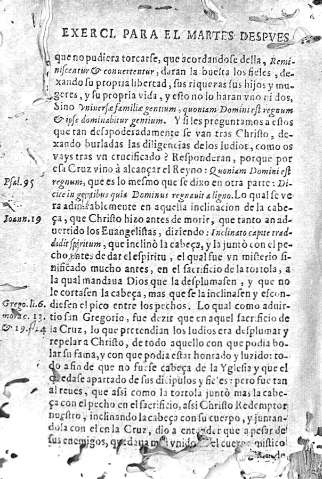 EXERCI. PARA EL MARTES DESPVES
que no pudiera torcarse, que acordandose della, Remi-
niscentur & conuertentur, daran la buelta los fieles, de-
xando su propria libertad, sus riqueras sus hijos y mu-
geres, y su propria vida, y esto no lo haran vno ni dos,
Sino vniuersæ familiæ gentium, quoniam Domini est regnum
& ipse dominabitur gentium. Y si les preguntamos a estos
que tan desapoderadamente se van tras Christo, de-
xando burladas las diligencias de los Iudios, como os
vays tras vn crucificado? Responderan, porque por
essa Cruz vino à alcançar el Reyno: Quoniam Domini est
Psal. 95 regnum, que es lo mesmo que se dixo en otra parte: Di-
cite in gentibus quia Dominus regnauit a ligno. Lo qual se ve
ra admirablemente en aquella inclinacion de la cabe-
Ioann. 19 ça, que Christo hizo antes de morir, que tanto an ad-
uertido los Euangelistas, diziendo: Inclinato capite tra-
didit spiritum, que inclinò la cabeça, y la juntò con el pe-
cho antes de dar el espiritu, el qual fue vn misterio si-
nificado mucho antes, en el sacrificio de la tortola, a
la qual mandaua Dios que la desplumasen, y que no
le cortasen la cabeça, mas que se la inclinasen y escon-
Grego. li. 6. diesen el pico entre los pechos. Lo qual como aduir-
mora c. 13. tio san Gregorio, fue dezir que en aquel sacrificio de
& 19. la Cruz, lo que pretendian los Iudios era desplumar y
repelar a Christo, de todo aquello con que podia bo-
lar su fama, y con que podia estar honrado y luzido: to-
do a fin de que no fuese cabeça de la Yglesia y que el
quedase apartado de sus dicipulos y fieles: pero fue tan
al reues, que assi como la tortola juntò mas la cabe-
ça con el pecho en el sacrificio, assi Christo Redemptor
nuestro, inclinando la cabeça con su cuerpo, y juntan-
dola con el en la Cruz, dio a entender que a pesar de
sus enemigos, quedaua mas vnido el cuerpo mistico